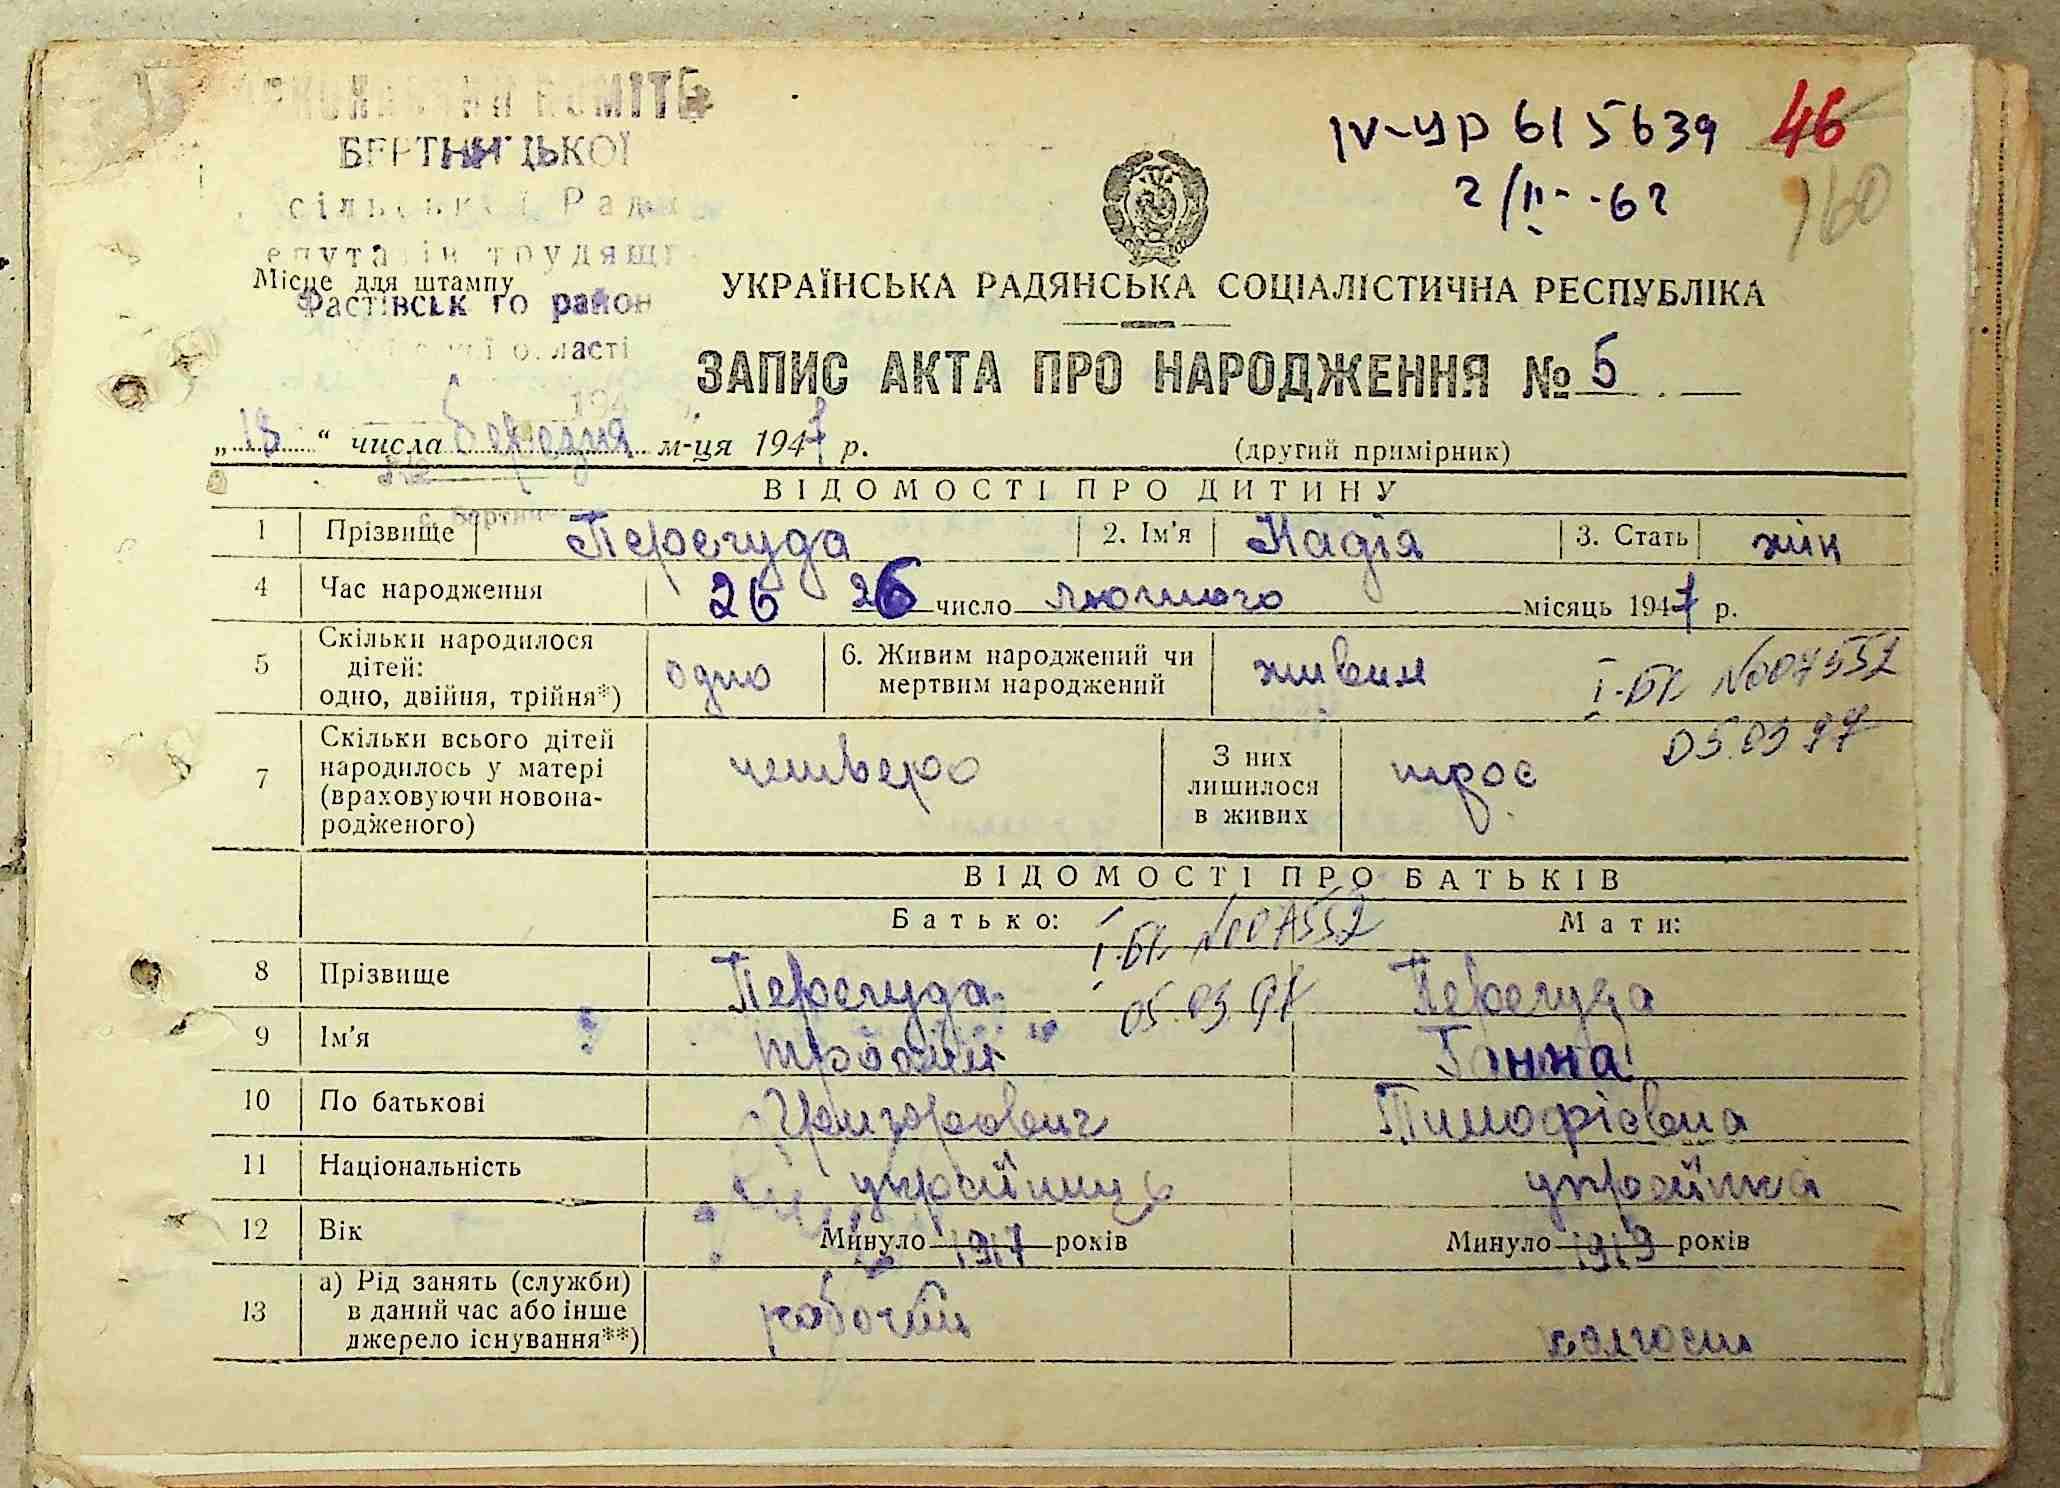 КОМІТЕ
БЕРТНИЦЬКОЇ
сільської Рад
епутатів трудящ
Місце для штампу
Фастівськ го район
області
194
IV-УР 615639 46
2/II--62 160
УКРАЇНСЬКА РАДЯНСЬКА СОЦІАЛІСТИЧНА РЕСПУБЛІКА
ЗАПИС АКТА ПРО НАРОДЖЕННЯ № 5
„18“ числа березня м-ця 1947 р. (другий примірник)
с. Бертни
ВІДОМОСТІ ПРО ДИТИНУ
1 Прізвище Перегуда 2. Ім'я Надія 3. Стать жін
4 Час народження 26 26 число лютого місяць 1947 р.
5 Скільки народилося дітей: одно, двійня, трійня*) одно 6. Живим народжений чи мертвим народжений живим
I-БК №007552
05.03 97
7 Скільки всього дітей народилось у матері (враховуючи новона-родженого) четверо З них лишилося в живих троє
ВІДОМОСТІ ПРО БАТЬКІВ
Батько: Мати:
I-БК №007552
05.03.97
8 Прізвище Перегуда Перегуда
9 Ім'я Ганна
10 По батькові Григорович Тимофієвна
11 Національність українець українка
12 Вік Минуло 1917 років Минуло 1919 років
13 а) Рід занять (служби) в даний час або інше джерело існування**) робочий колгосп